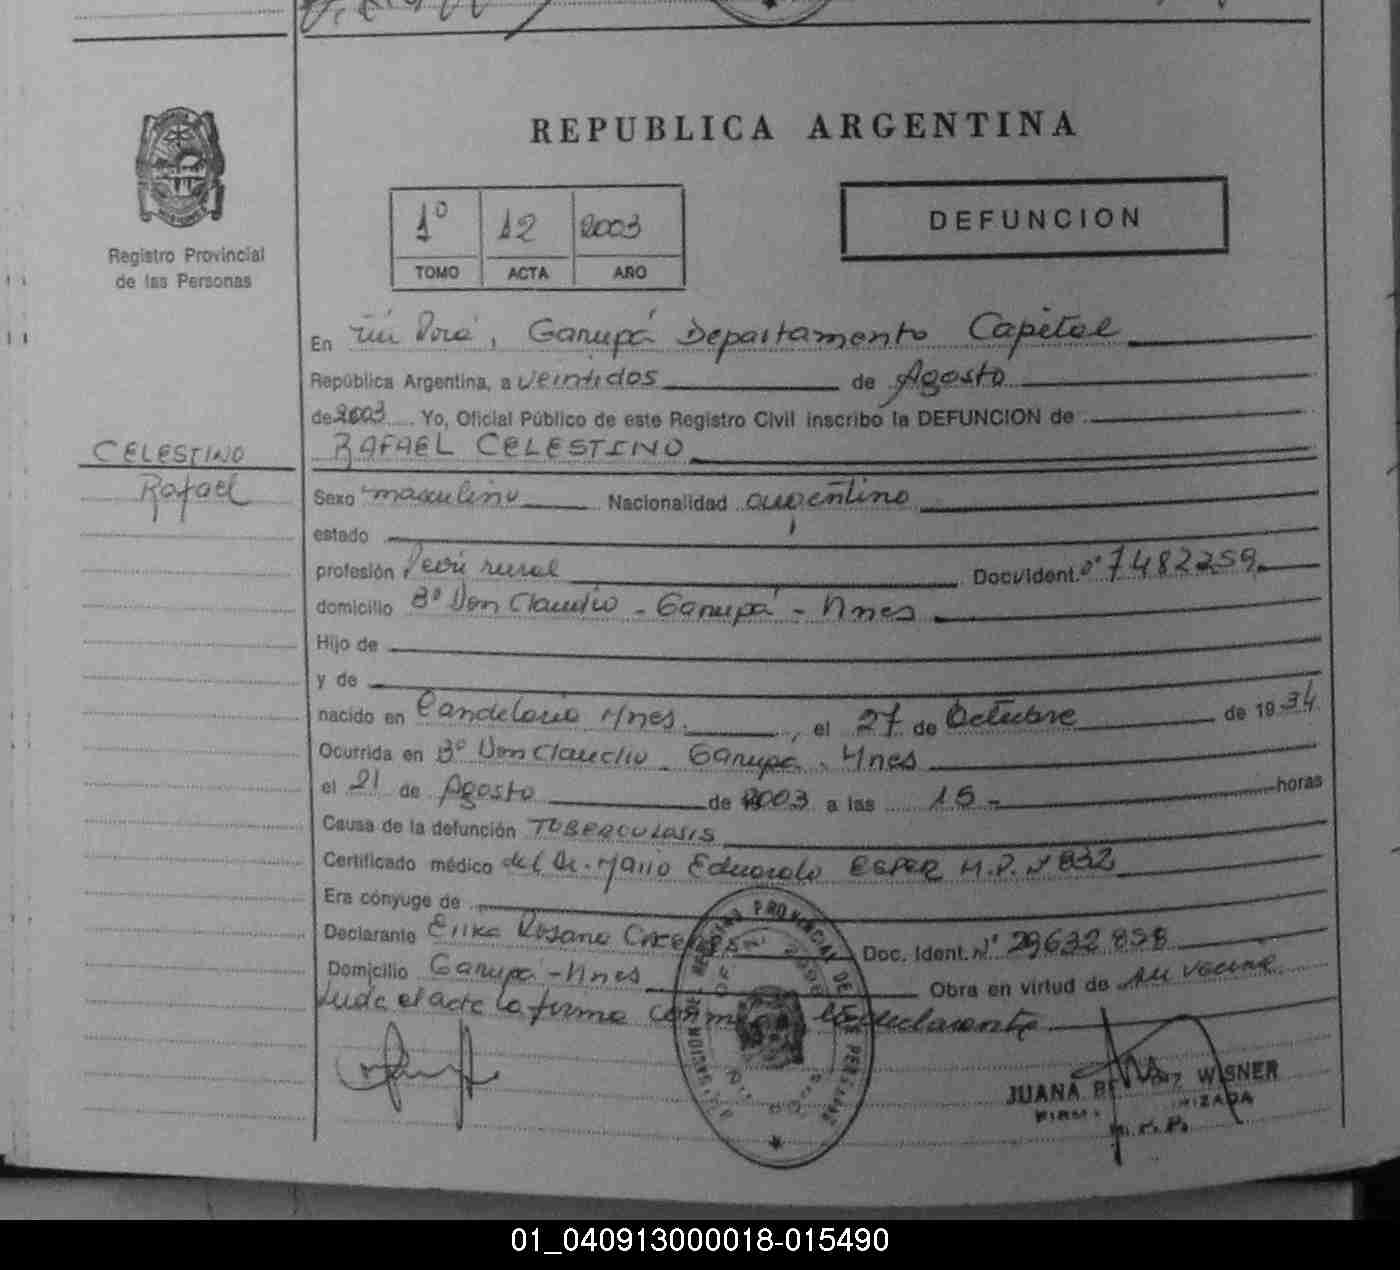 REPUBLICA ARGENTINA
Registro Provincial
de las Personas
1º 12 2003
TOMO ACTA AÑO
DEFUNCION
En Porá, Garupá Departamento Capital
República Argentina, a veintidos de Agosto
de 2003 Yo, Oficial Público de este Registro Civil inscribo la DEFUNCION de
CELESTINO
Rafael
RAFAEL CELESTINO
Sexo masculino Nacionalidad argentino
estado
profesión Peón rural Doc. Ident. nº 7482259
domicilio Bº Don Claudio - Garupá - Mnes
Hijo de
y de
nacido en Candelaria Mnes. , el 27 de Octubre de 19 34
Ocurrida en Bº Don Claudio - Garupá - Mnes
el 21 de Agosto de 2003 a las 15 - horas
Causa de la defunción TUBERCULOSIS
Certificado médico del Dr. Mario Eduardo ESPER M.P. Nº 832
Era cónyuge de
Declarante Erika Rosana Doc. Ident. Nº 29632858
Domicilio Garupá - Mnes Obra en virtud de
el acta la firma declarante
REGISTRO PROVINCIAL DE LAS PERSONAS
JUANA WISNER
01_040913000018-015490